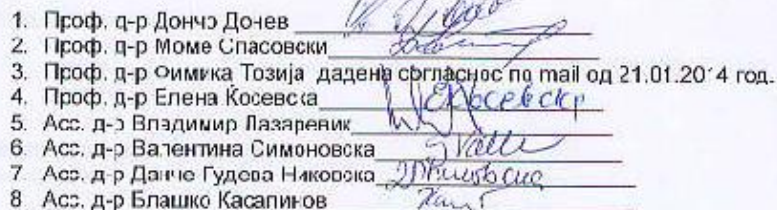 1. Проф. д-р Дончо Донев
2. Проф. д-р Моме Спасовски
3. Проф. д-р Фимика Тозија дадена согласнос по mail од 21.01.2014 год.
4. Проф. д-р Елена Косевска ЕКосевскр
5. Асс. д-р Владимир Лазаревик
6. Асс. д-р Валентина Симоновска
7. Асс. д-р Данче Гудева Никовска
8 Асс. д-р Блашко Касапинов